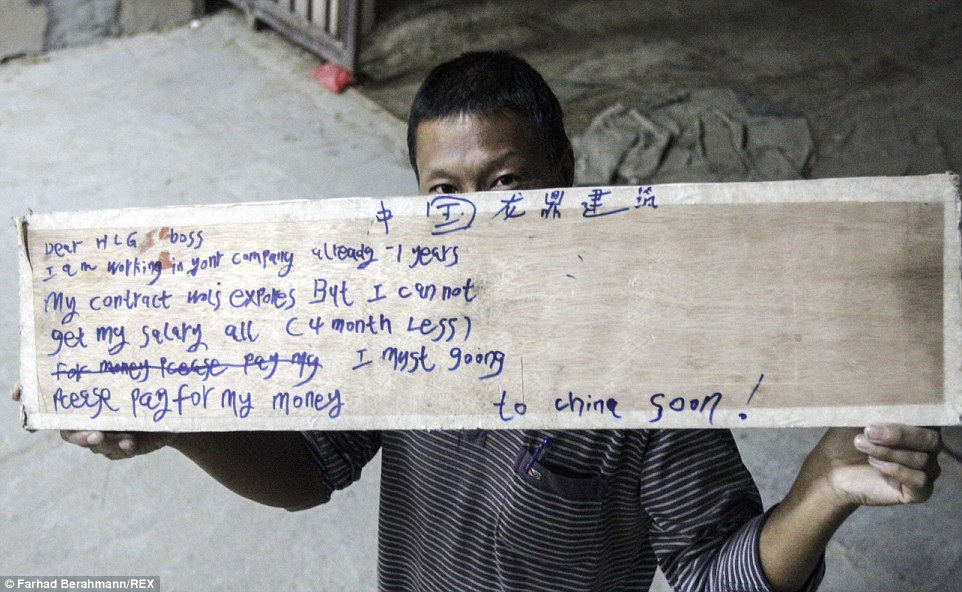 中国龙鼎建筑
Dear HLG boss
I am working in yont company already -1 years
My contract wolj expores But I can not
get my salary all (4 month Less)
For money Pcease pay my I myst goong
Pcease pay for my money to china soon!
© Farhad Berahmann/REX